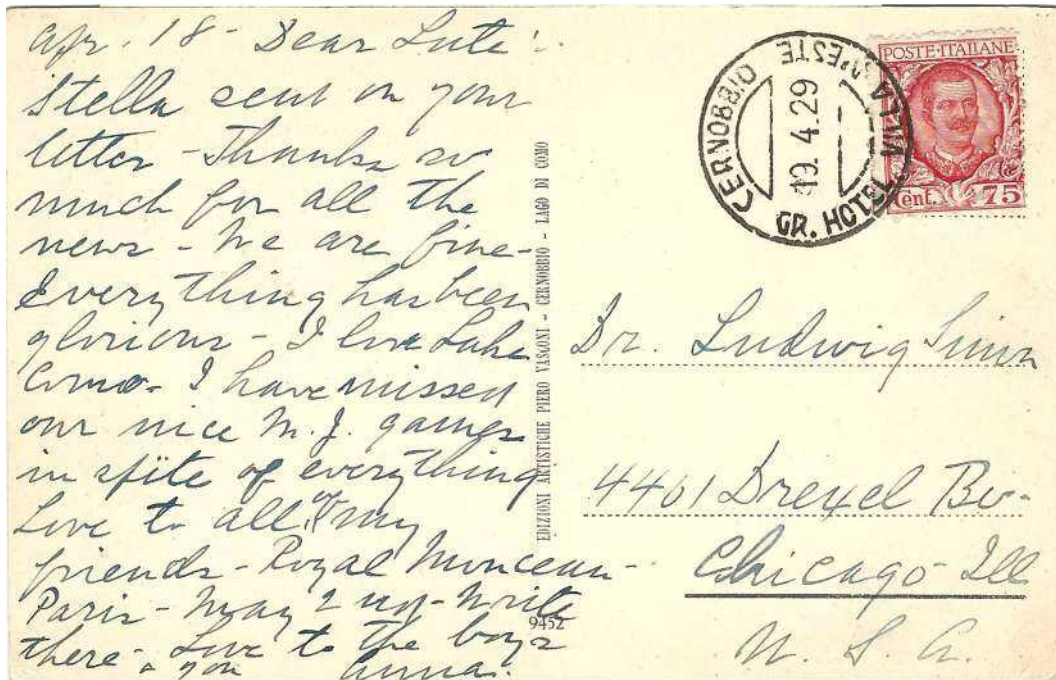 Apr. 18 - Dear Lute:
Stella sent on your
letter - Thanks so
much for all the
news - We are fine -
Everything has been
glorious - I love Lake
Como - I have missed
our nice M. J. games
in spite of everything
Love to all of my
friends - Royal Monceau -
Paris - May 2 up - Write
there - Love to the boys
& you Anna.
EDIZIONI ARTISTICHE PIERO VASCONI - CERNOBBIO - LAGO DI COMO
9452
CERNOBBIO VILLA D'ESTE
19. 4.29
GR. HOTEL
POSTE·ITALIANE
Cent. 75
Dr. Ludwig
4401 Drexel Bv -
Chicago - Ill
U. S. A.